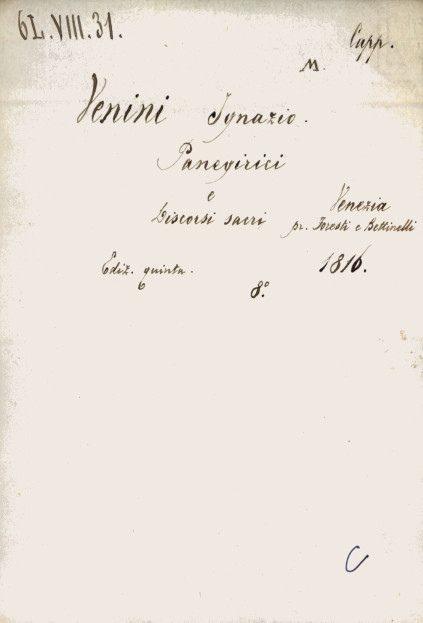 6L.VIII.31.
Capp.
M.
Venini Ignazio.
Panegirici
e
Discorsi sacri
Venezia
pr. Foresti e Bettinelli
Ediz. quinta.
1816.
8.°
C